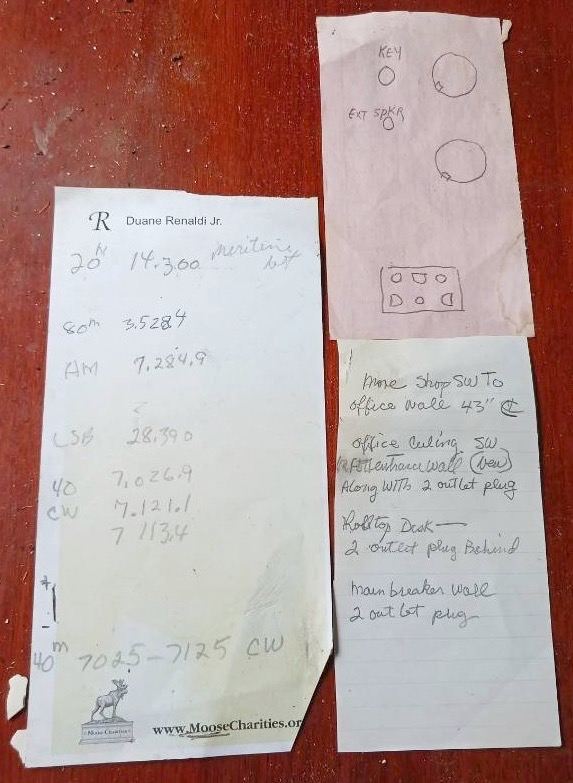 R Duane Renaldi Jr.
20m 14.300 net
80m 3.5284
AM 7.284.9
LSB 28.390
40 7.026.9
CW 7.121.1
7 113.4
+
-
40m 7025-7125 CW
Moose Charities
www.MooseCharities.or
KEY
EXT SPKR
move Shop SW To
office wall 43" ℄
office Ceiling SW
entrance wall (new)
Along With 2 outlet plug
Rolltop Desk—
2 outlet plug Behind
main breaker wall
2 outlet plug